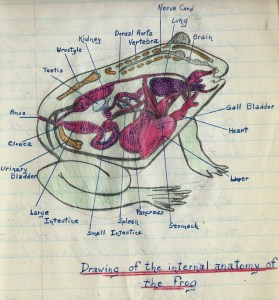 Nerve Cord
Lung
Dorsal Aorta
Kidney
Vertebra
Brain
Urostyle
Testis
Anus
Gall Bladder
Cloaca
Heart
Urinary
Bladder
Liver
Pancreas
Large
Intestine
Spleen
Stomach
Small Intestine
Drawing of the internal anatomy of
the Frog